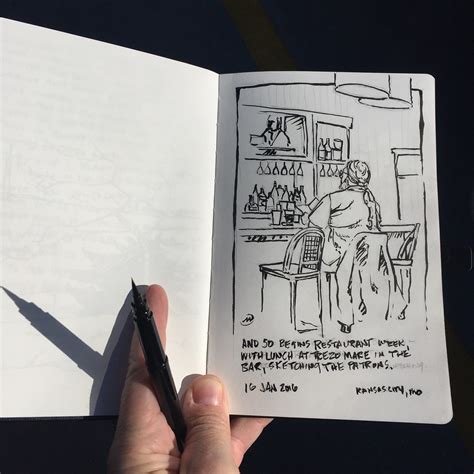 AND SO BEGINS RESTAURANT WEEK
WITH LUNCH AT TREZO MARE IN THE
BAR, SKETCHING THE PATRONS.
16 JAN 2016
KANSAS CITY, MO